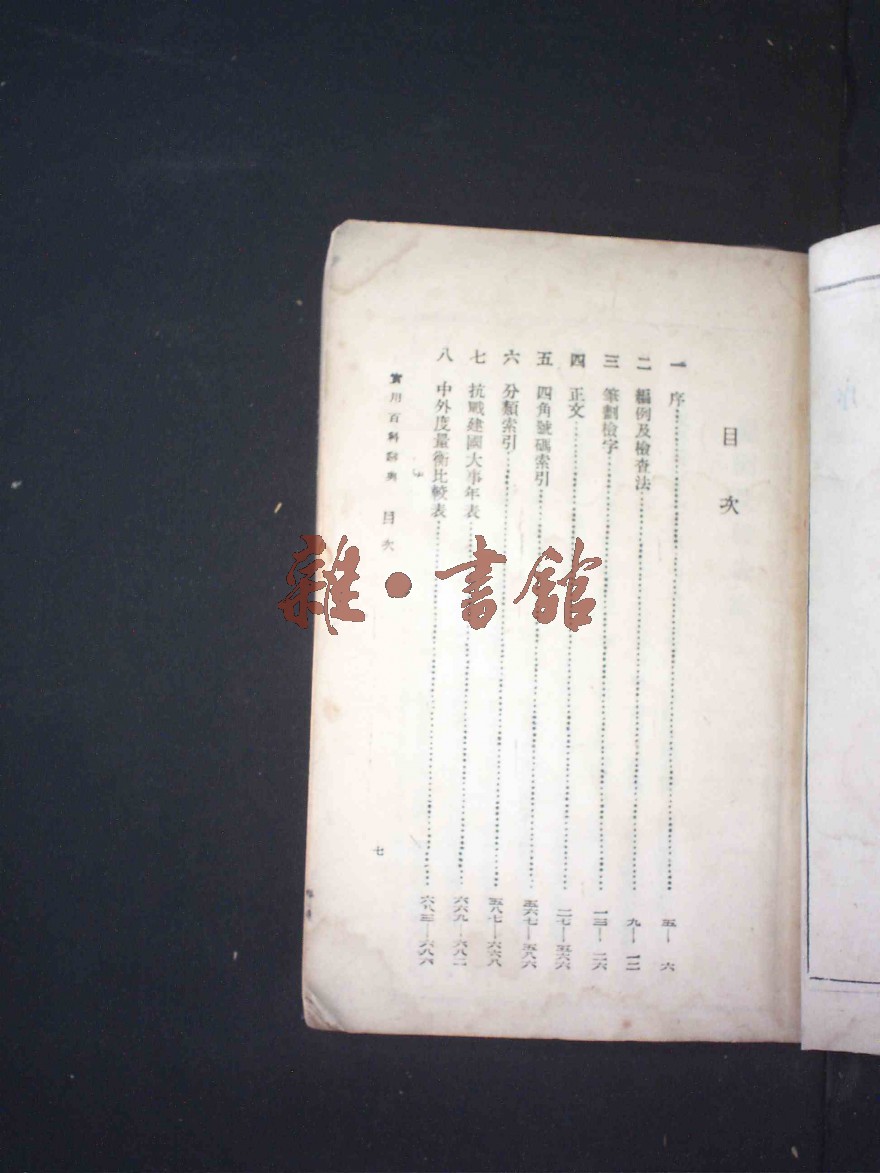 目次
一 序……五—六
二 編例及檢查法……九—一二
三 筆劃檢字……一三—二六
四 正文……二七—五六六
五 四角號碼索引……五六七—五八六
六 分類索引……五八七—六六八
七 抗戰建國大事年表……六六九—六八二
八 中外度量衡比較表……六八三—六八六
實用百科辭典 目次
七
雜·書館